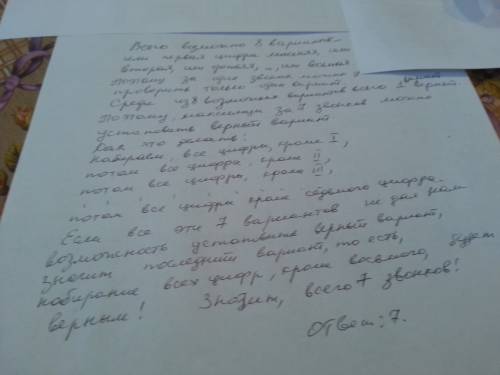 Всего возможно 8 вариантов –
или первая цифра лишняя, или
вторая, или третья, ..., или восьмая
Поэтому за один звонок можно
проверить только один вариант.
Среди из 8 возможных вариантов всего 1 верный.
Поэтому, максимум за 7 звонков можно
установить верный вариант
Как это делать:
Набираем, все цифры, кроме I,
потом все цифры, кроме II,
потом все цифры, кроме III,
потом все цифры кроме седьмого цифра.
Если все эти 7 вариантов не дал нам
возможность установить верный вариант,
значит последний вариант, то есть,
набирание всех цифр, кроме восьмого, будет
верным! Значит, всего 7 звонков!
Ответ: 7.